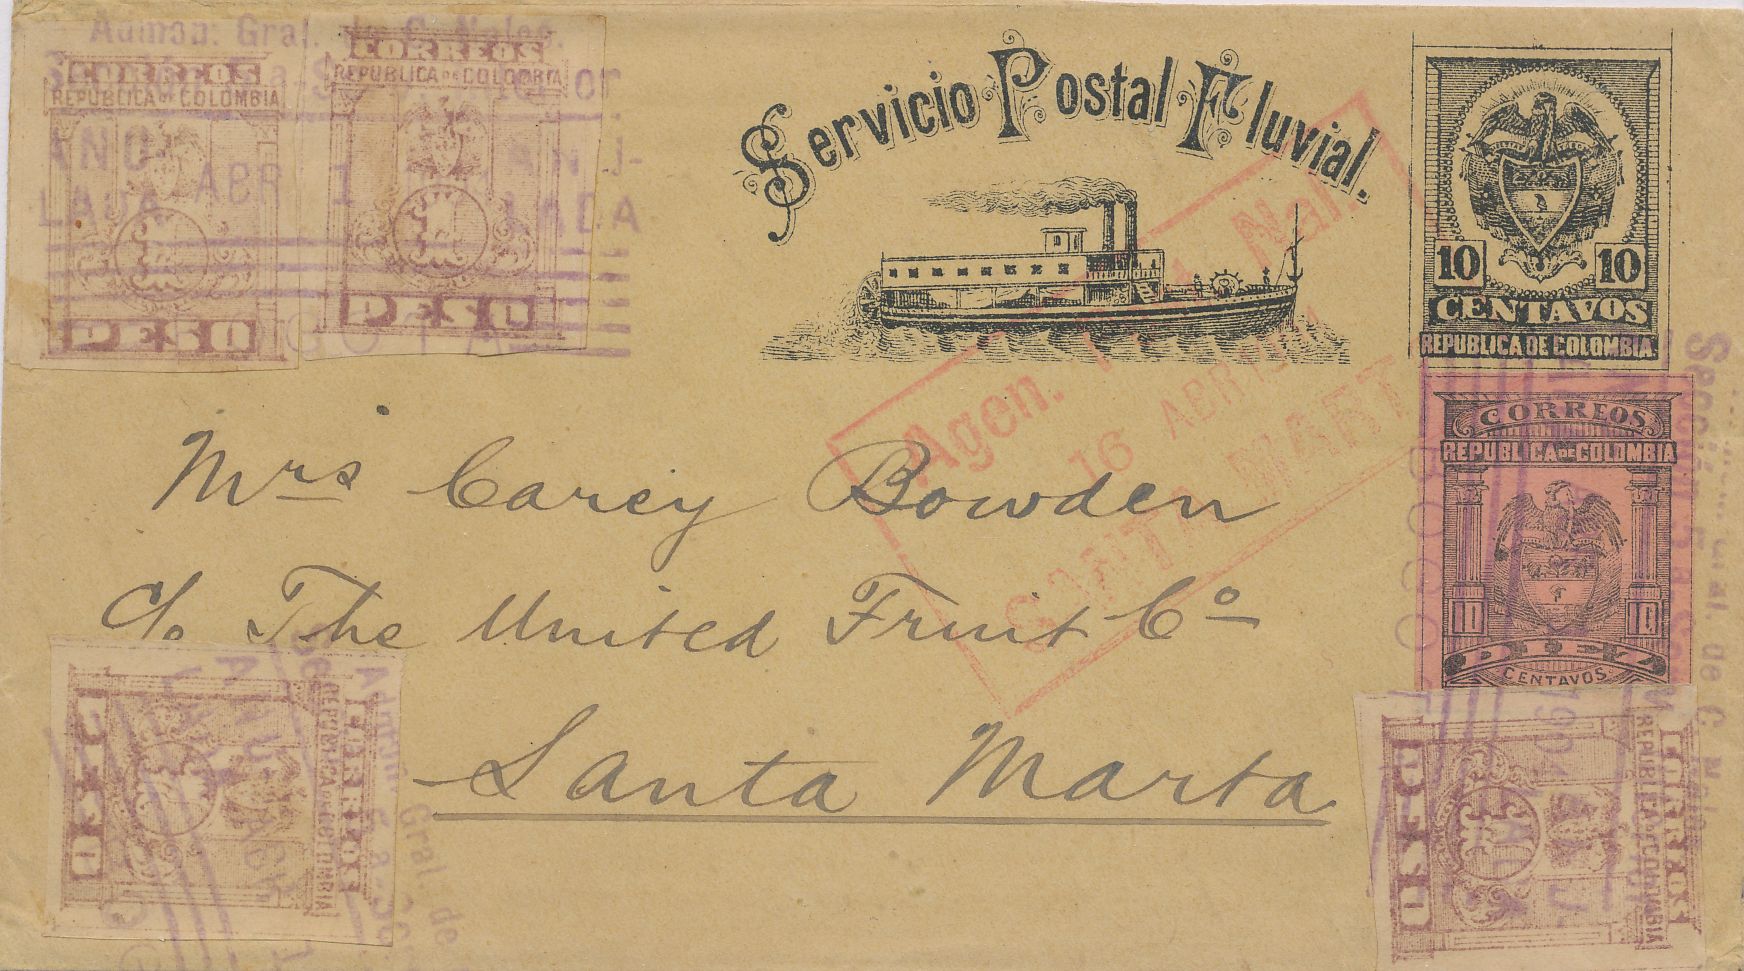 Admon. Gral. de C. Nales.
CORREOS
REPUBLICA DE COLOMBIA
PESO
CORREOS
REPUBLICA DE COLOMBIA
PESO
ABR 1
LADA
Servicio Postal Fluvial.
10 10
CENTAVOS
REPUBLICA DE COLOMBIA.
CORREOS
REPUBLICA DE COLOMBIA
10 10
DIEZ
CENTAVOS
Agen. Nal.
16 ABR 1904
SANTA MARTA
Mrs Carey Bowden
c/o The United Fruit Co
Santa Marta
CORREOS
REPUBLICA DE COLOMBIA
PESO
CORREOS
REPUBLICA DE COLOMBIA
PESO
BOGOT
1904
Gral. de